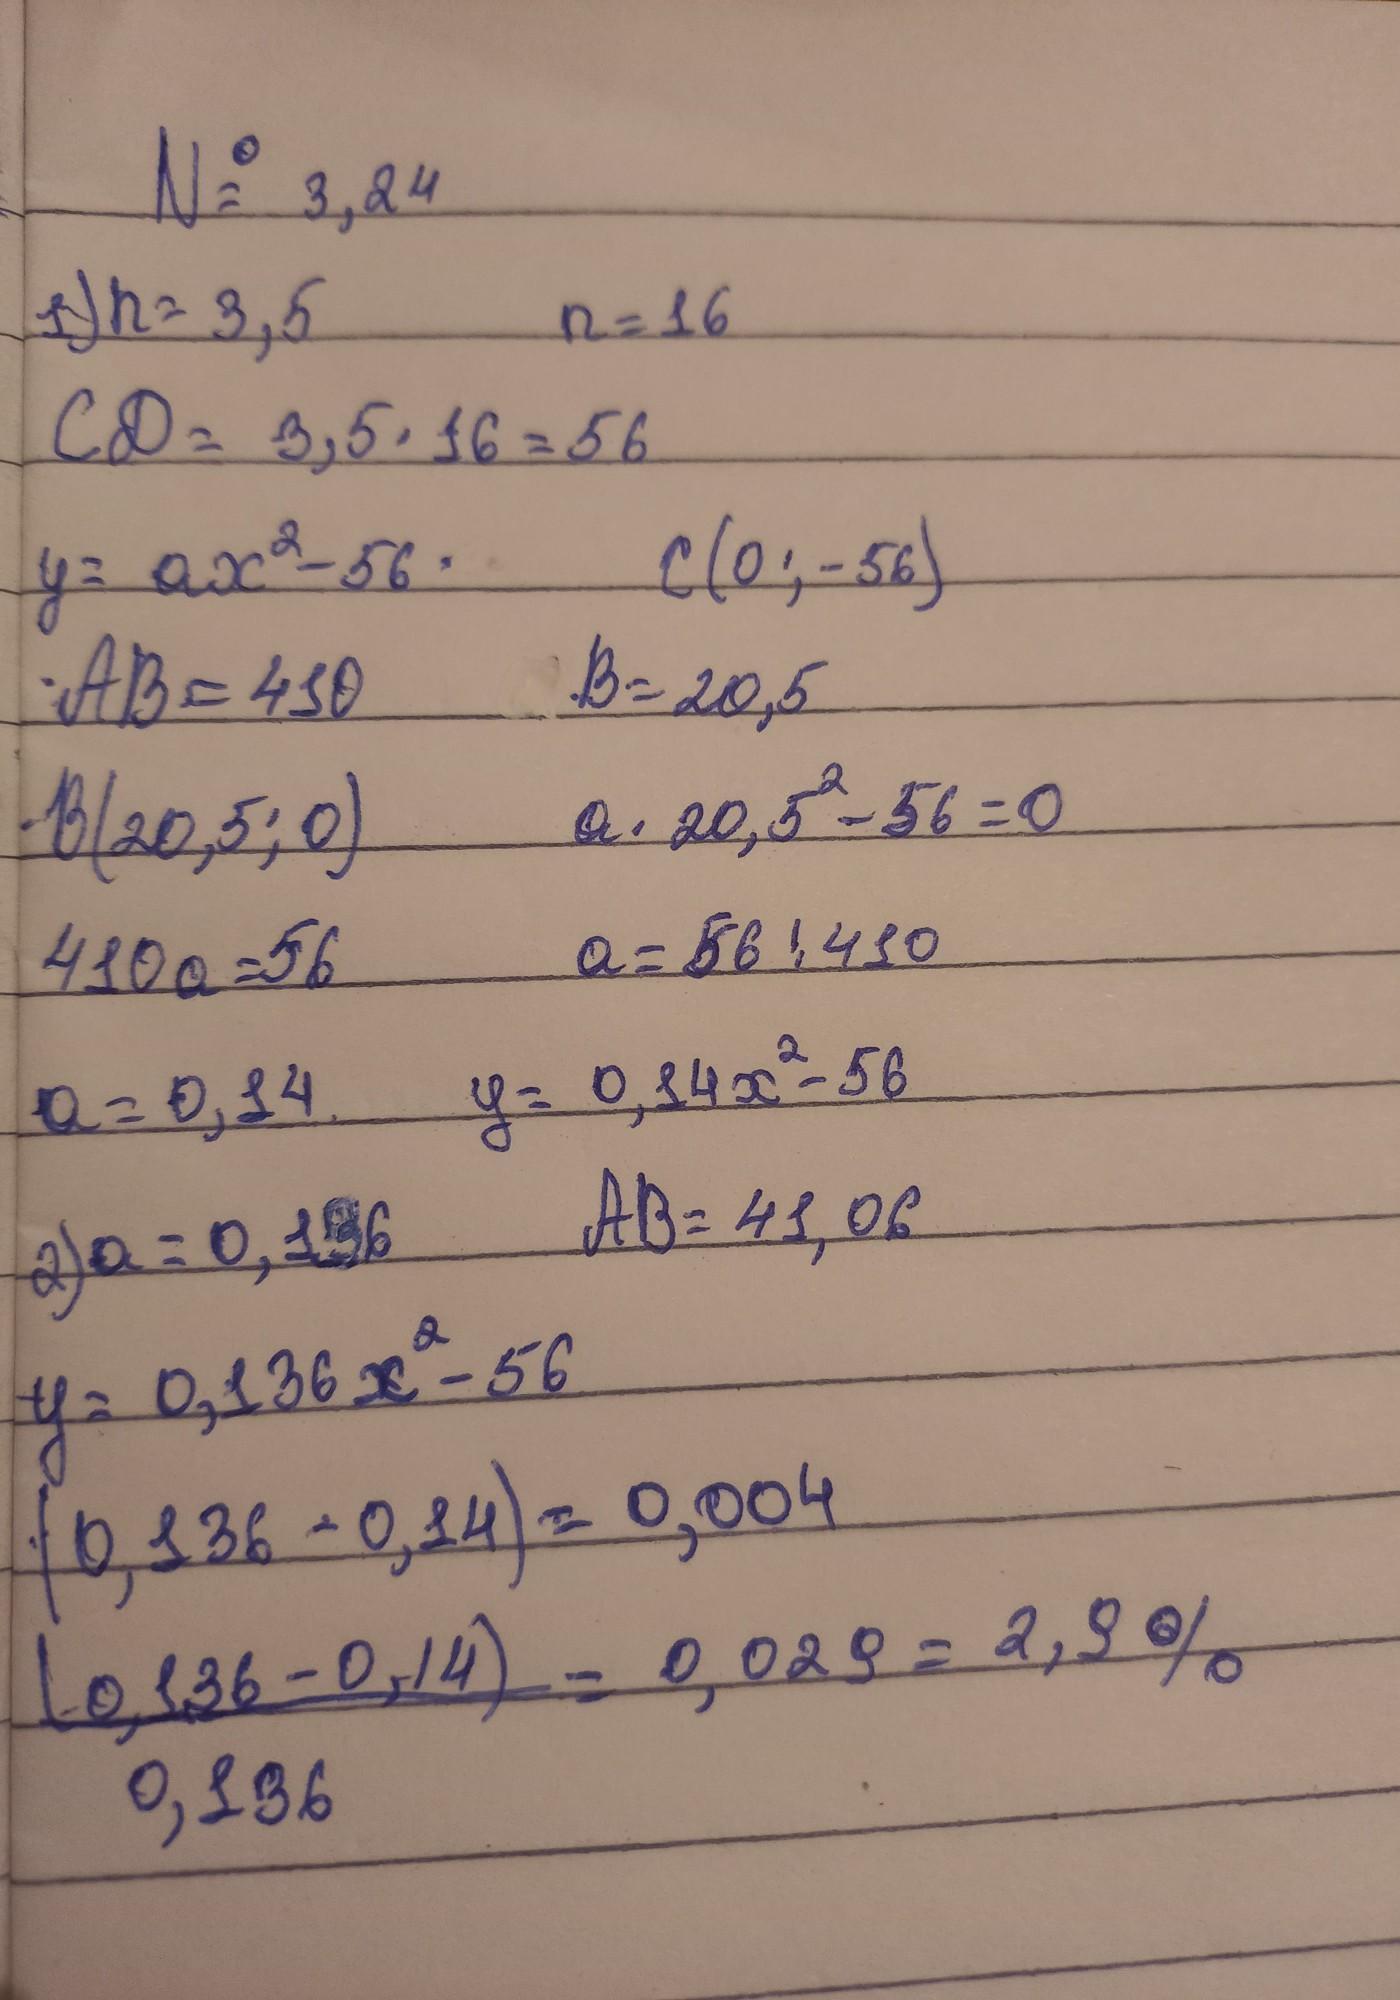 № 3,24
1) h = 3,5 n = 16
CD = 3,5 · 16 = 56
y = ax² - 56 · C(0; -56)
AB = 410 B = 20,5
B(20,5; 0) a · 20,5² - 56 = 0
410a = 56 a = 56 : 410
a = 0,14. y = 0,14x² - 56
2) a = 0,136 AB = 41,06
y = 0,136x² - 56
(0,136 - 0,14) = 0,004
(0,136 - 0,14) = 0,029 = 2,9%
0,136